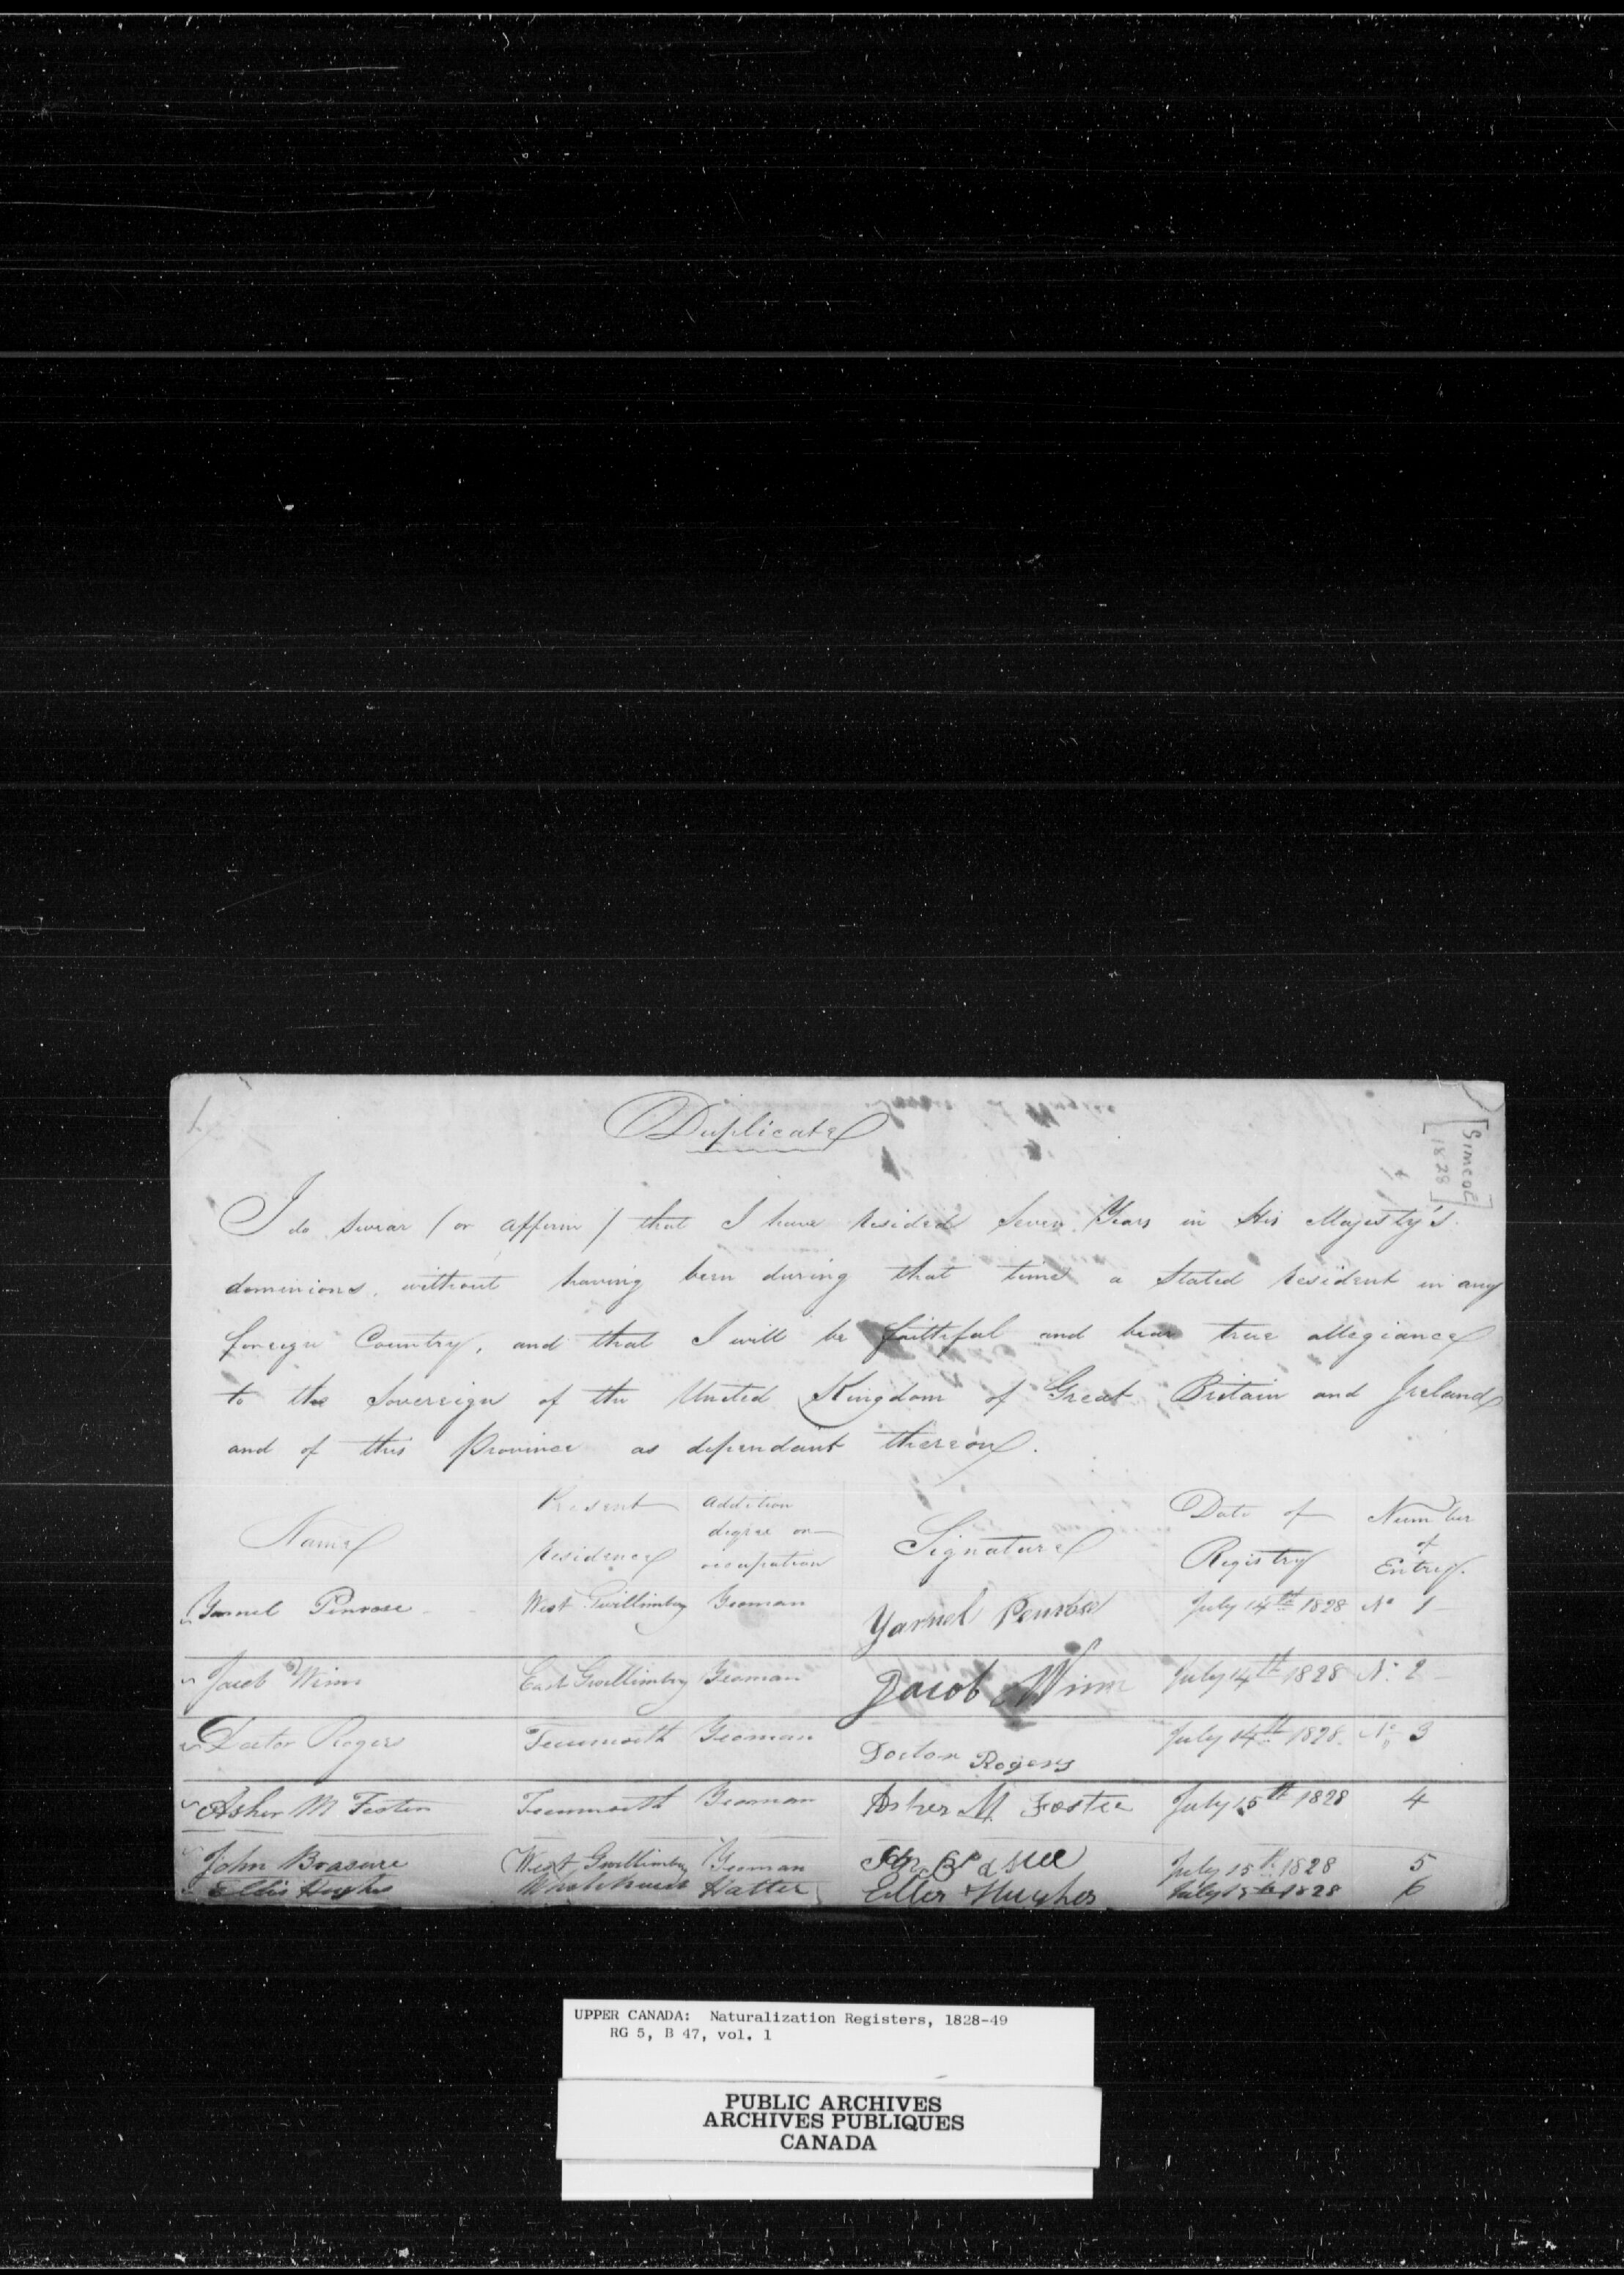 1
Duplicate
[Simcoe
1828]
I do Swear (or affirm) that I have resided Seven Years in His Majesty's
dominions, without having been during that time a Stated resident in any
foreign Country, and that I will be faithful and bear true allegiance
to the Sovereign of the United Kingdom of Great Britain and Ireland
and of this Province as dependant thereon.
Name Present Residence Addition degree or occupation Signature Date of Registry Number of Entry.
Penrose West Gwillimbury Yeoman Yarnel Penrose July 14th 1828 No 1
Jacob Winn East Gwillimbury Yeoman Jacob Winn July 14th 1828 No 2
Doctor Rogers Tecumseth Yeoman Doctor Rogers July 14th 1828. No 3
Asher M Foster Tecumseth Yeoman Asher M Foster July 15th 1828 4
John Brasure West Gwillimbury Yeoman July 15th 1828 5
Ellis Hughes Hatter Hughes July 15th 1828 6
UPPER CANADA: Naturalization Registers, 1828-49
RG 5, B 47, vol. 1
PUBLIC ARCHIVES
ARCHIVES PUBLIQUES
CANADA